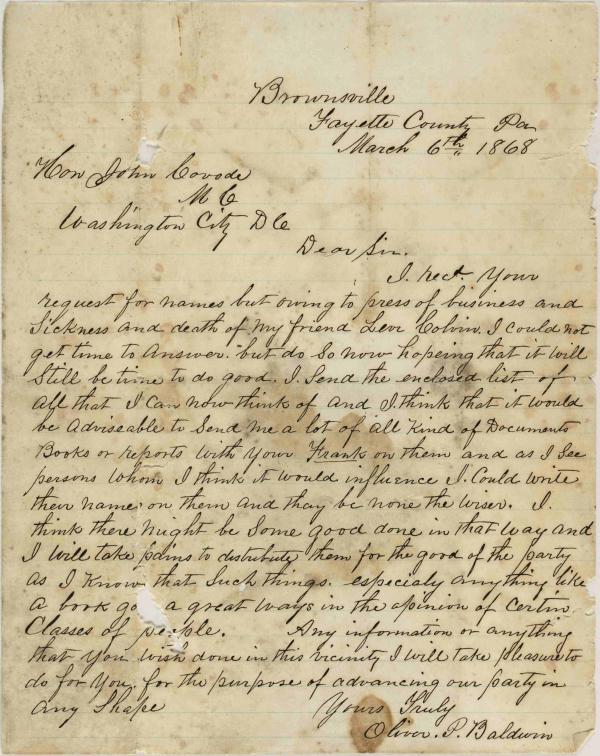 Brownsville
Fayette County Pa
March 6th 1868
Hon John Covode
M C
Washington City D C
Dear Sir.
I. rect. Your
request for names but owing to press of business and
Sickness and death of My friend Levi Colvin. I could not
get time to Answer. but do So now hopeing that it will
Still be time to do good. I. Send the enclosed list of
all that I can now think of and I. think that it would
be Adviseable to Send me a lot of all Kind of Documents
Books or reports with Your Frank on them and as I See
persons whom I think it would influence I. Could write
their names on them and thay be none the wiser. I.
think there Might be Some good done in that way and
I will take pains to distribute them for the good of the party
as I Know that Such things. especialy anything like
a book go a great ways in the opinion of Certin
Classes of people. Any information or anything
that You wish done in this vicinity I will take pleasure to
do for You for the purpose of advancing our party in
any Shape Yours Truly
Oliver. P. Baldwin